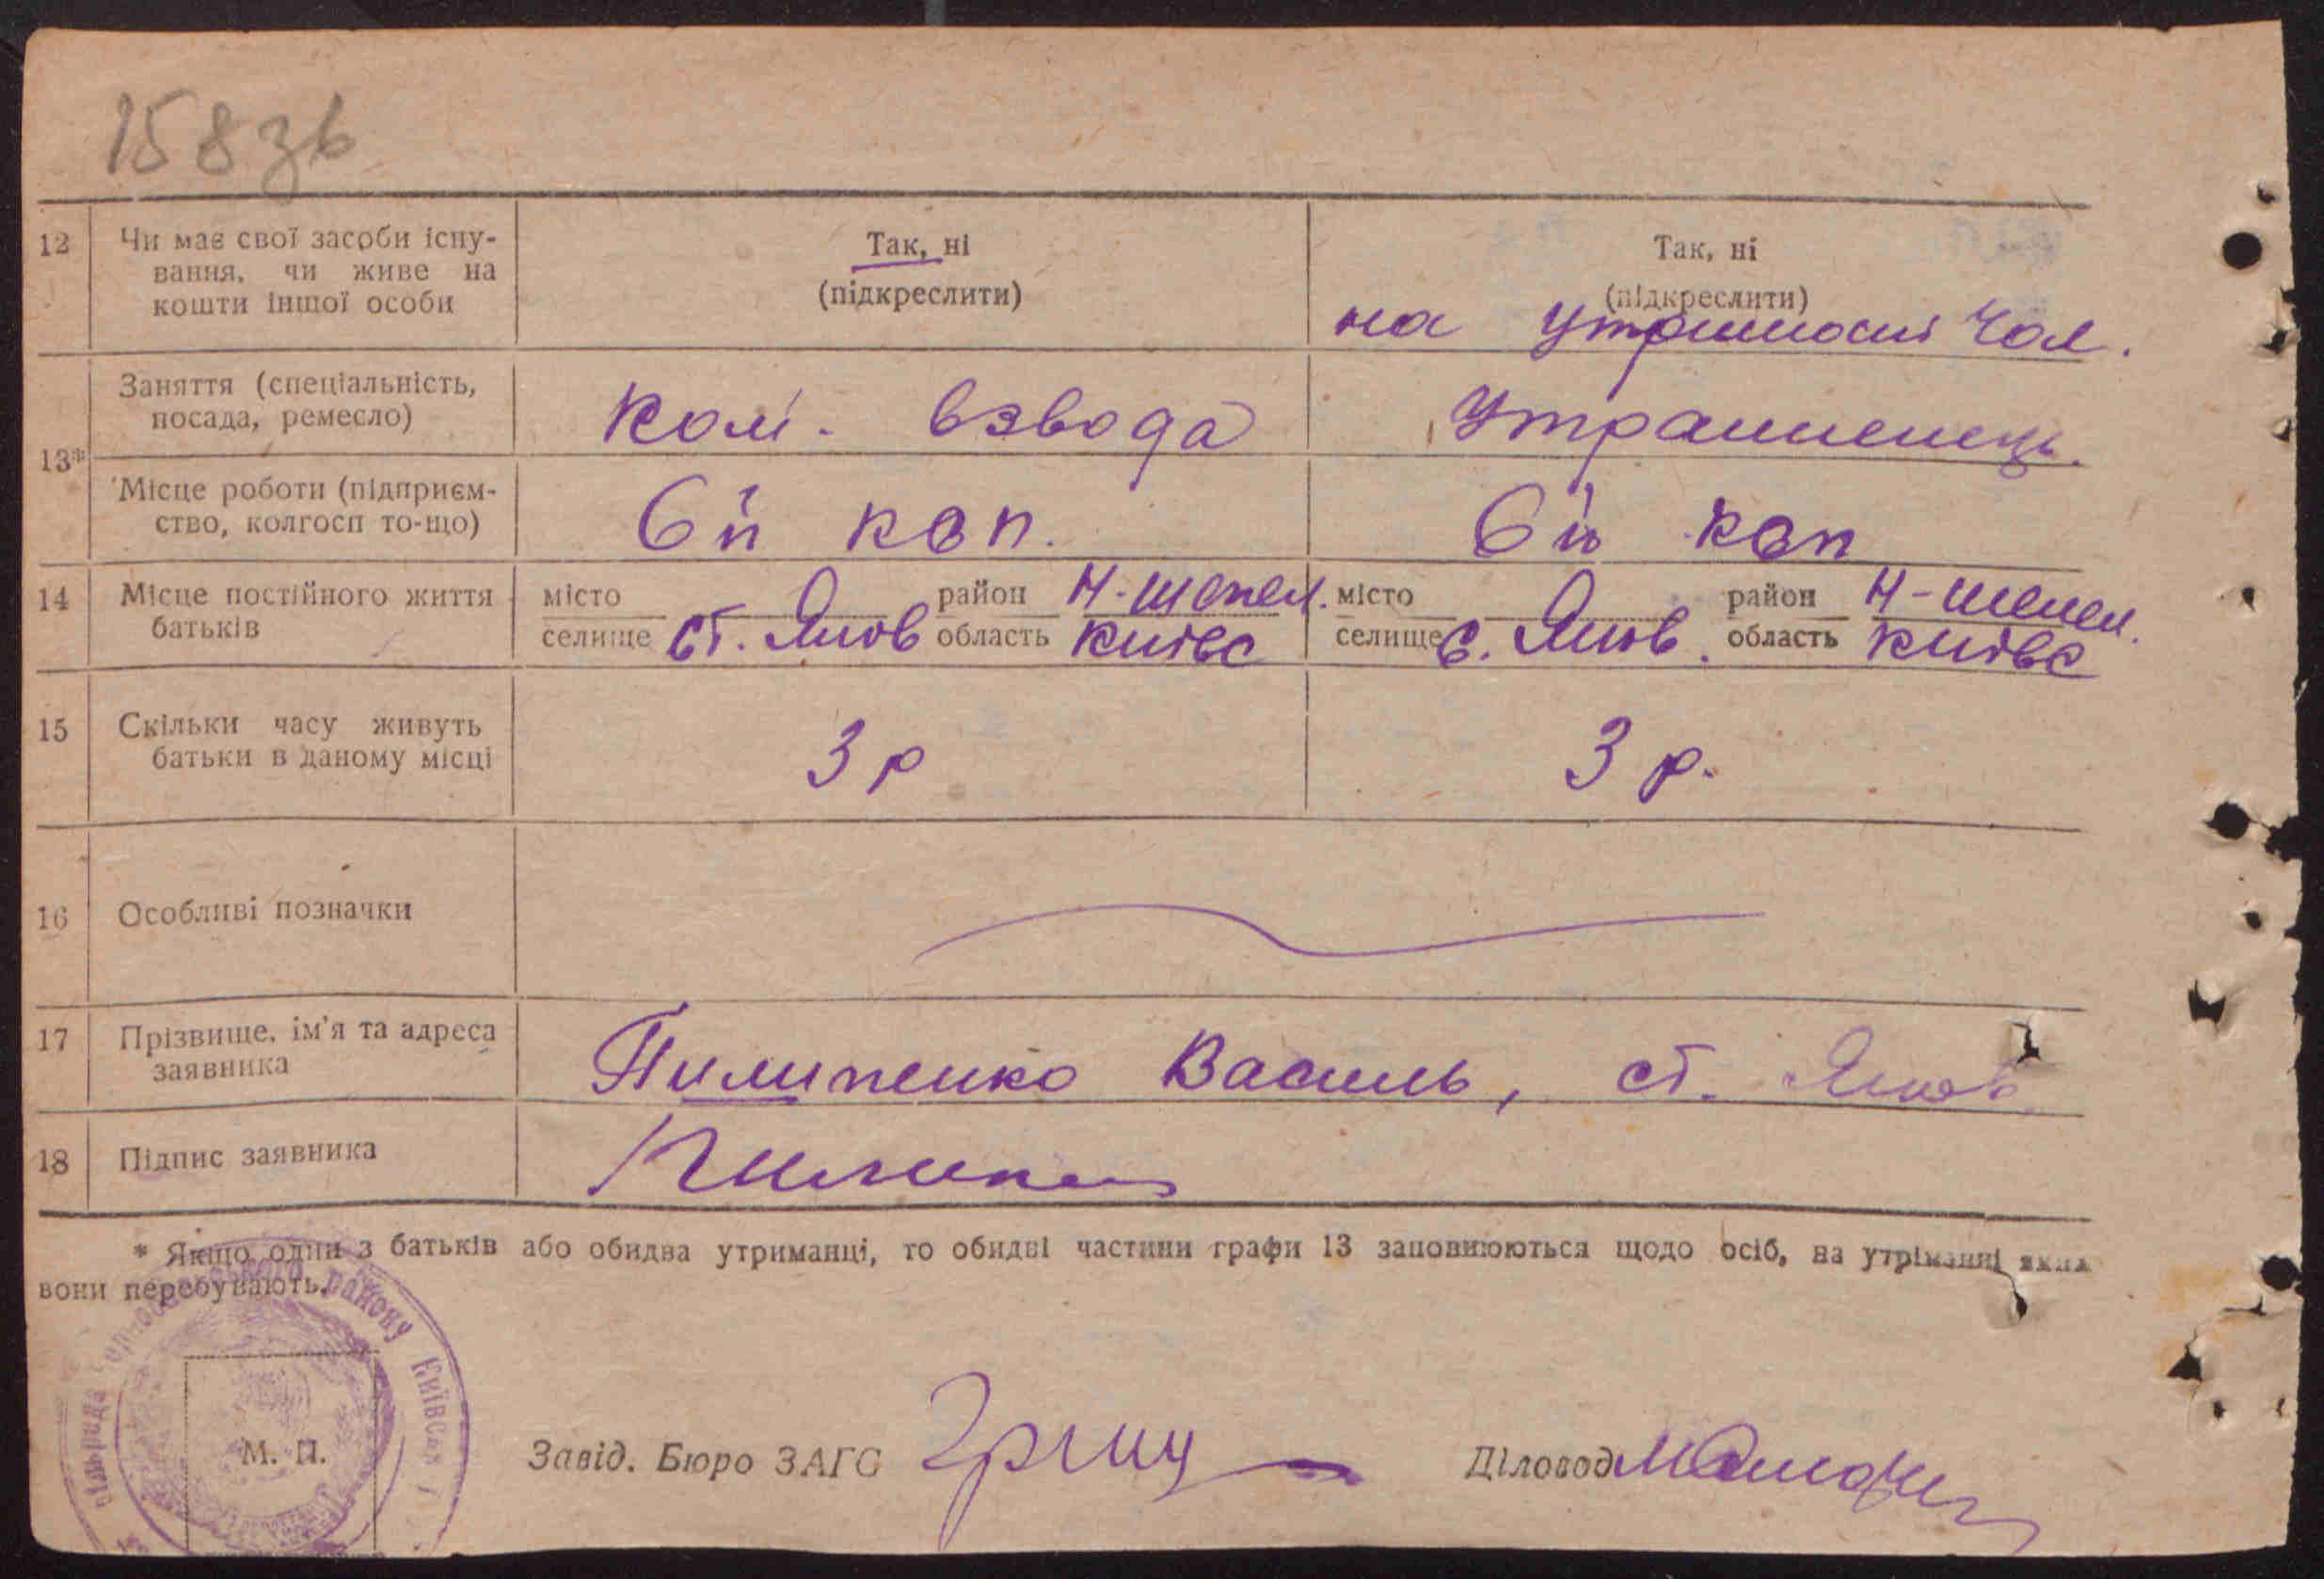 158 зв
12 Чи має свої засоби існу-
вання, чи живе на
кошти іншої особи
Так, ні
(підкреслити)
Так, ні
(підкреслити)
на утриманні чол.
13*
Заняття (спеціальність,
посада, ремесло)
Ком. взвода
Утриманець.
Місце роботи (підприєм-
ство, колгосп то-що)
6й кап.
6й кап
14 Місце постійного життя
батьків
місто район Н-Шепел.
селище ст. Янов область Київс
місто район Н-Шепел.
селище с. Янов. область Київс
15 Скільки часу живуть
батьки в даному місці
3 р
3 р.
16 Особливі позначки
17 Прізвище, ім'я та адреса
заявника
Пилипенко Василь, ст. Янов
18 Підпис заявника
* Якщо один з батьків або обидва утриманці, то обидві частини графи 13 заповнюються щодо осіб, на утріманні яких
вони перебувають.
району Київськ
М. П.
Завід. Бюро ЗАГС
Діловод